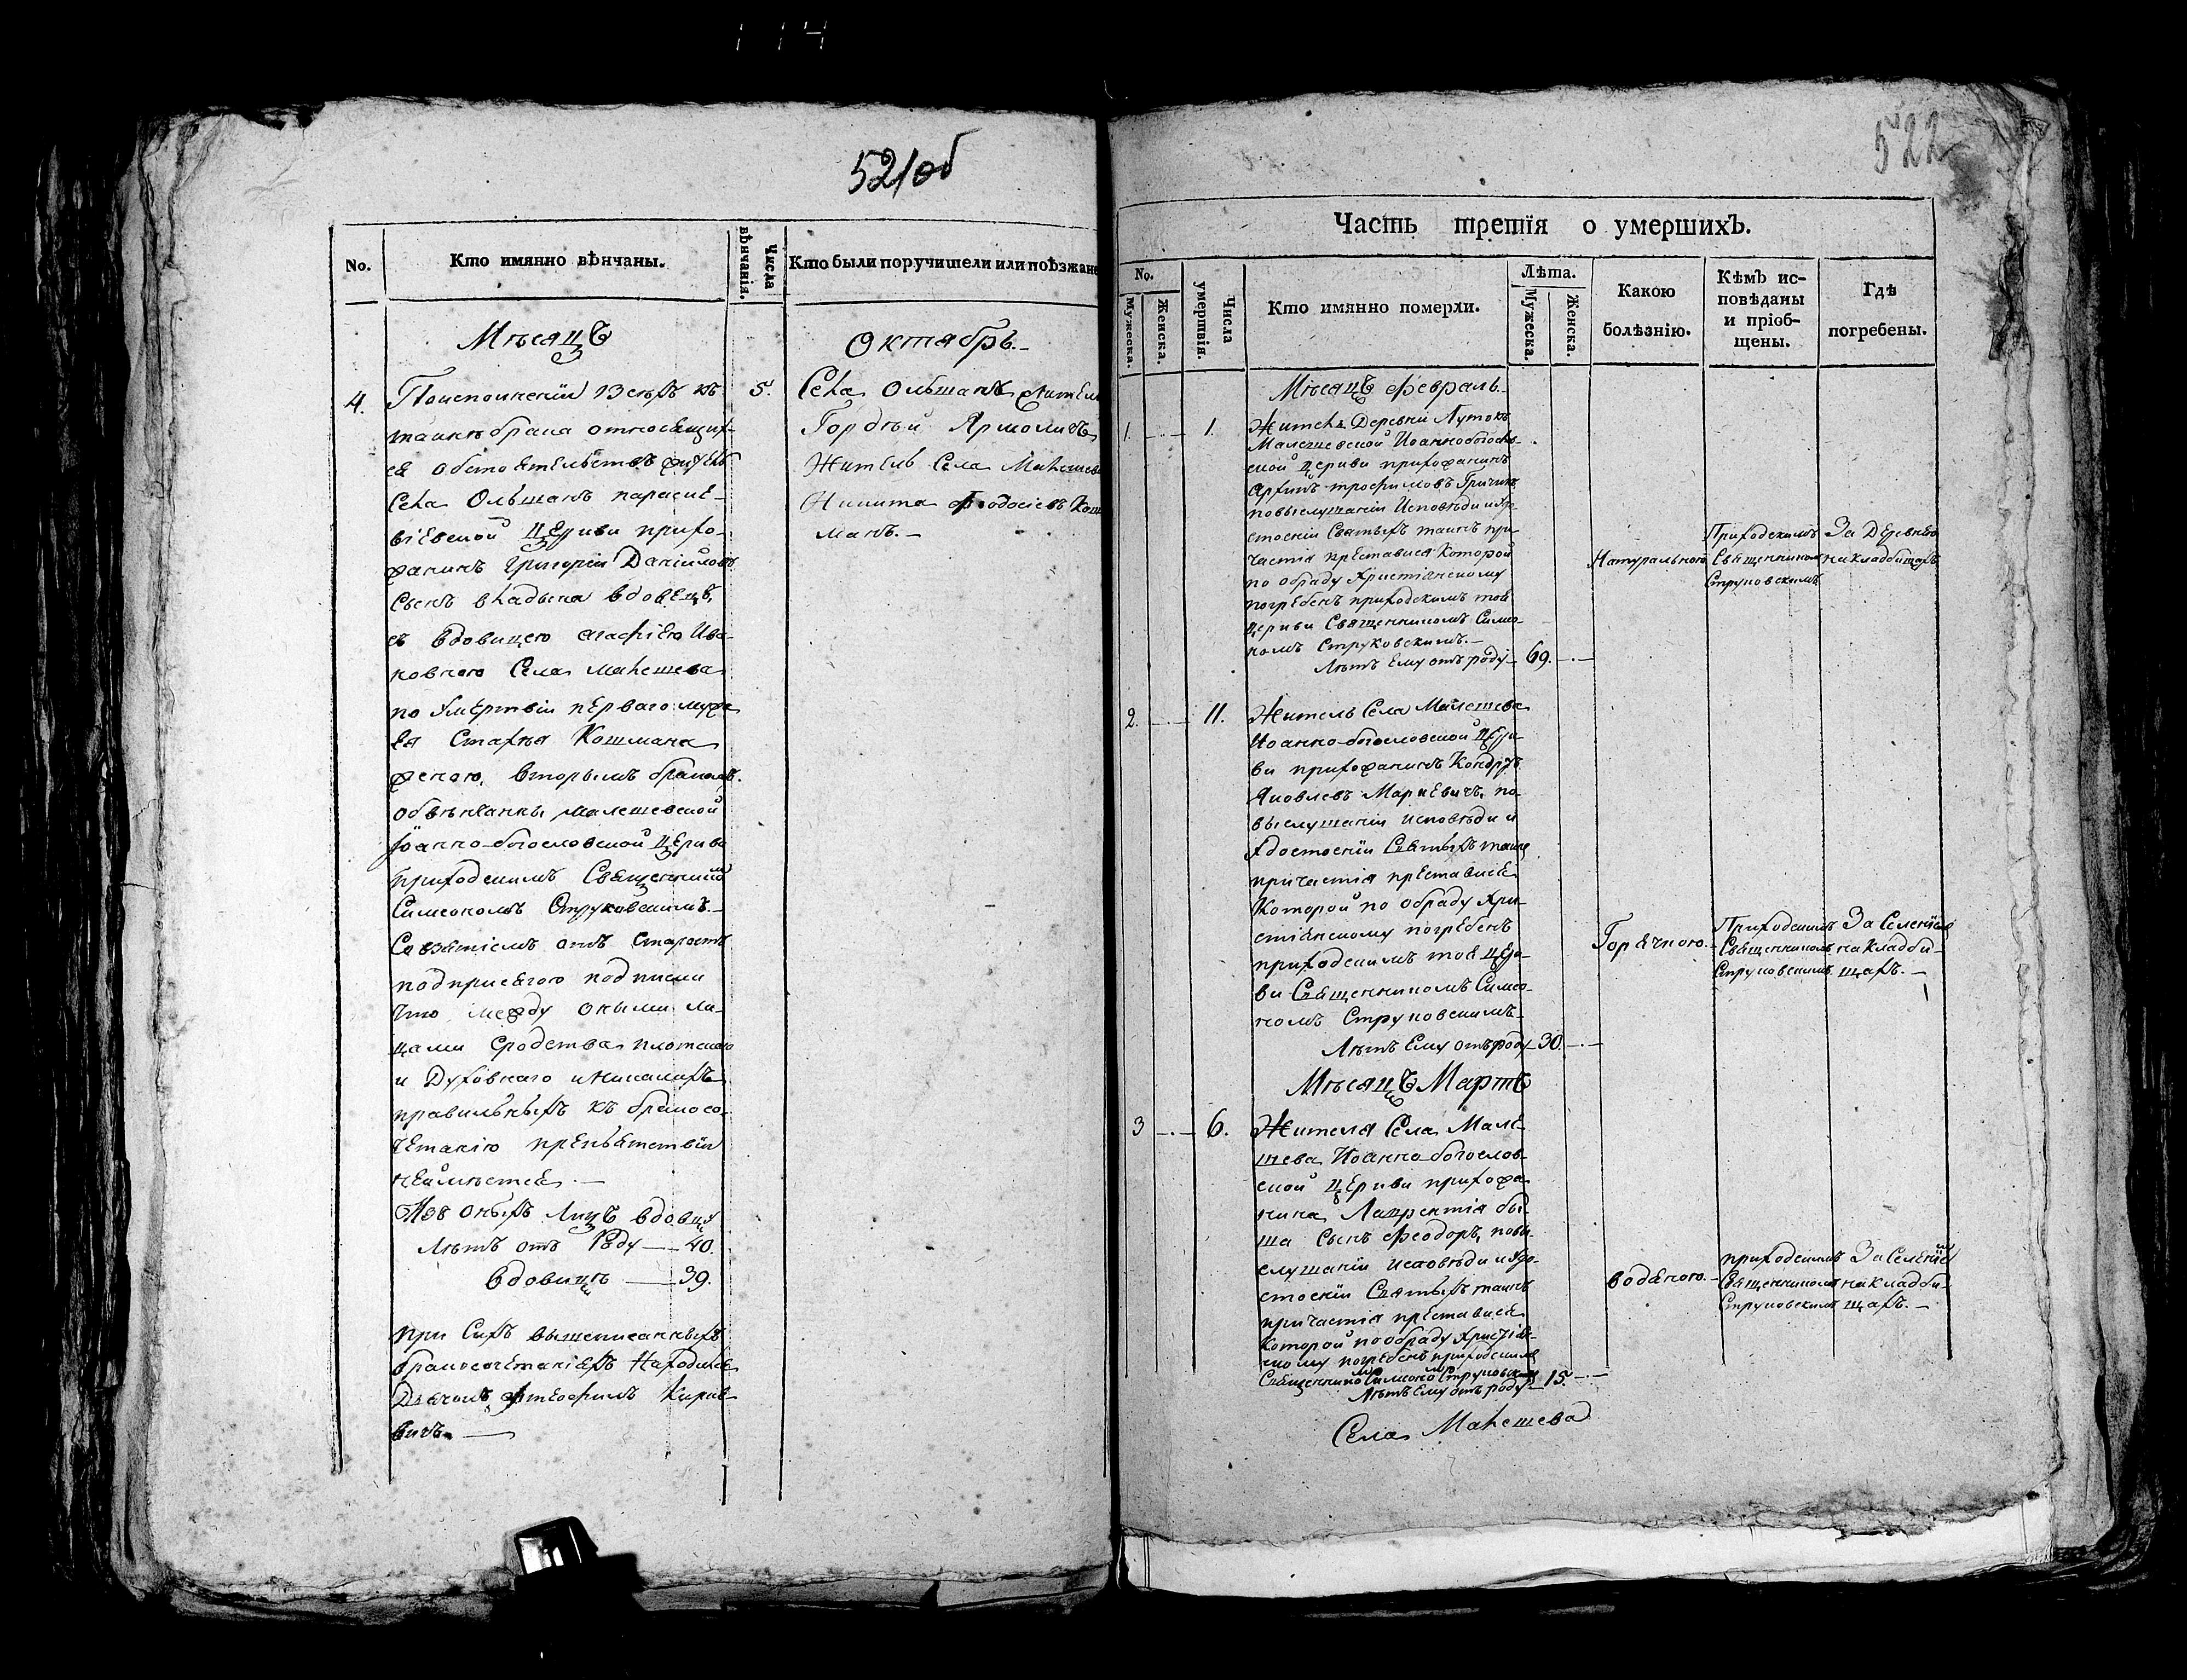 114
521об
No.
Кто имянно вѣнчаны.
Числа вѣнчанія.
Кто были поручители или поѣзжане
Мѣсяцъ
Октябрь
4.
5.
По исполненіи всѣхъ къ
таинѣ брака относящих-
ся обстоятельствъ жител
Села Ольшанъ параске-
віевской Церкви прихо-
жанинъ Григорій Даніиловъ
Сынъ вдовецъ,
съ вдовицею Агафіею Ива-
новною Села Малешева
по умертвіи перваго мужа
ея Кошмана
женою, вторымъ бракомъ.
обвѣнчаны Малешевской
Іоанно-богословской Церкви
приходскимъ Священником
Симеономъ Струковскимъ.
Со взятіемъ отъ
под присягою подписки
что между оными ли-
цами сродства плотскаго
и Духовнаго и никакихъ
правильныхъ къ бракосо-
четанію препятствій
неимѣется.
Изъ оныхъ Лицъ вдовцу
Лѣтъ отъ Роду — 40.
вдовицѣ — 39.
при Сихъ вышеписанныхъ
бракосочетаніяхъ Находился
Дьячокъ
вичъ.
Села Ольшанъ Жители
Гордѣй Ярмоличъ
Житель Села Малешева
Никита Феодосіевъ Кош
манъ.
522
Часть третія о умершихъ.
No.
Мужеска.
Женска.
Числа умертвія.
Кто имянно померли.
Лѣта.
Мужеска.
Женска.
Какою болѣзнію.
Кѣмъ ис-
повѣданы
и пріоб-
щены.
Гдѣ
погребены.
Мѣсяцъ Февраль
1. 1.
Житель Деревни Лутокъ
Малешевской Иоаннобогослов
ской Церкви прихожанинъ
трофимовъ
по выслушаніи Исповѣди и удо
стоеніи Святыхъ таинъ при-
частія преставися Которой
по обряду Христіянскому
погребенъ приходскимъ тоя
Церкви Священникомъ Симео-
номъ Струковскимъ.
Лѣтъ Ему отъ роду — 69.
Натуральною
Приходскимъ
Священникомъ
Струковскимъ
За Деревнею
на кладбищахъ
2. 11.
Житель Села Малешева
Иоанно-богословской Церк
ви прихожанинъ
Яковлевъ Маркевичъ, по
выслушаніи исповѣди и
удостоеніи Святыхъ таинъ
причастія преставися
Которой по обряду Хри-
стіянскому погребенъ
приходскимъ тоя Церк-
ви Священникомъ Симео-
номъ Струковскимъ
Лѣтъ Ему отъ роду — 30.
Горячкою.
Приходскимъ
Священникомъ
Струковскимъ
За Селеніем
на кладби-
щахъ.
Мѣсяцъ Мартъ
3 6.
Жителя Села Мале-
шева Иоанно-богослов-
ской Церкви прихожа
нина Лаврентія
Сынъ Феодоръ, по вы-
слушаніи исповѣди и удо-
стоеніи Святыхъ таинъ
причастія преставися
Которой по обряду Христіан-
скому погребенъ приходскимъ
Священником Симеоном Струковским
Лѣтъ Ему отъ роду — 15.
водяною.
приходскимъ
Священникомъ
Струковскимъ
За Селеніем
на кладби-
щахъ.
Села Малешева